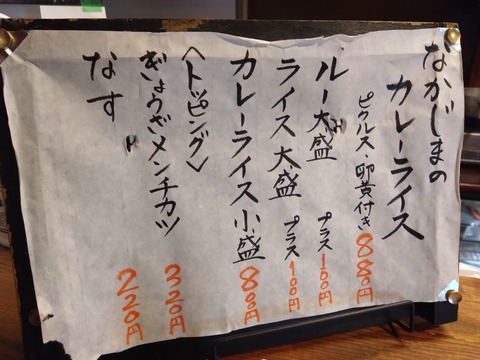 なかじまの
カレーライス
ピクルス、卵黄付き 880円
ルー大盛 プラス100円
ライス大盛 プラス100円
カレーライス小盛 800円
〈トッピング〉
ぎょうざメンチカツ 320円
なす 220円